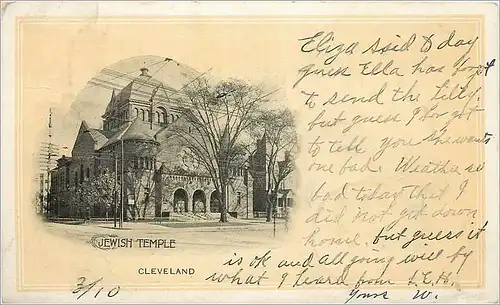 Eliza said to day
guess Ella has forgot
to send the
but guess I forgot
to tell you she wants
one bad. Weather so
bad to day that I
did not get down
home, but guess it
is ok and all going well by
what I learn from L.E.H.
Yours W.
JEWISH TEMPLE
CLEVELAND
3/10